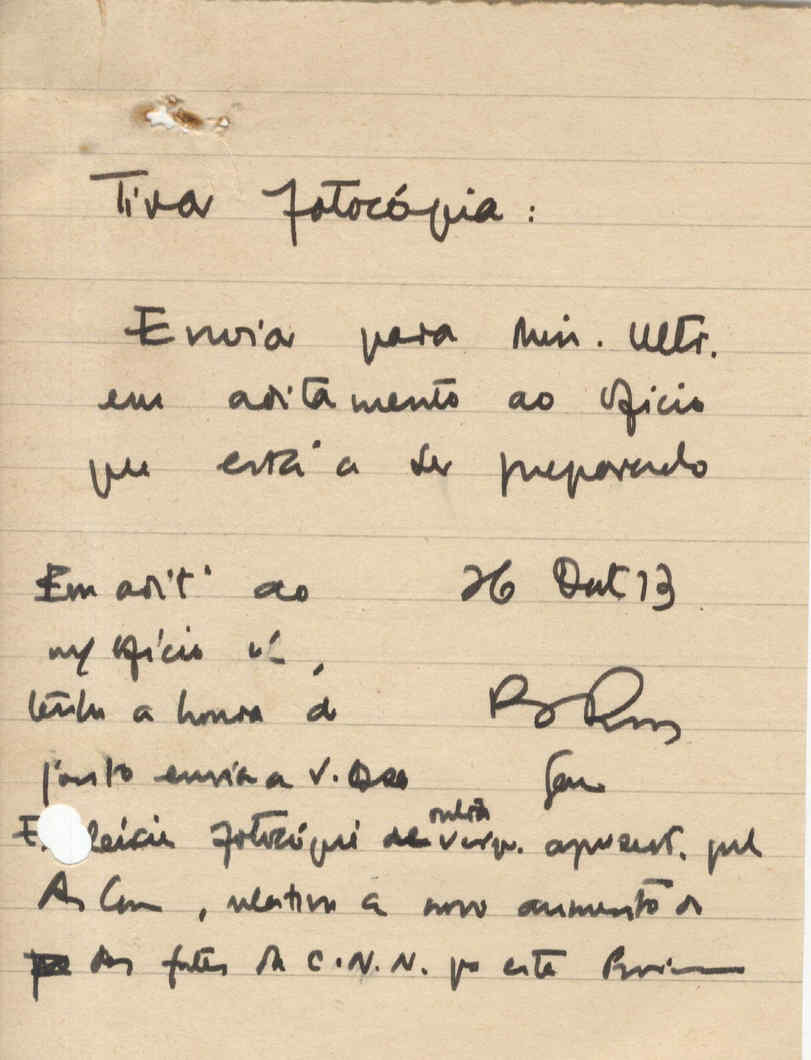 Tirar fotocópia:
Enviar para Min. Ultr.
em aditamento ao ofício
que está a ser preparado
Em adit. ao
26 Out 73
m/ ofício nº ,
tenho a honra de
junto enviar a V.
Gen.
E. fotocópia de outra apresent. pel
As Com , relativa a novo aumento
dos fretes da C.N.N. pª esta Provin